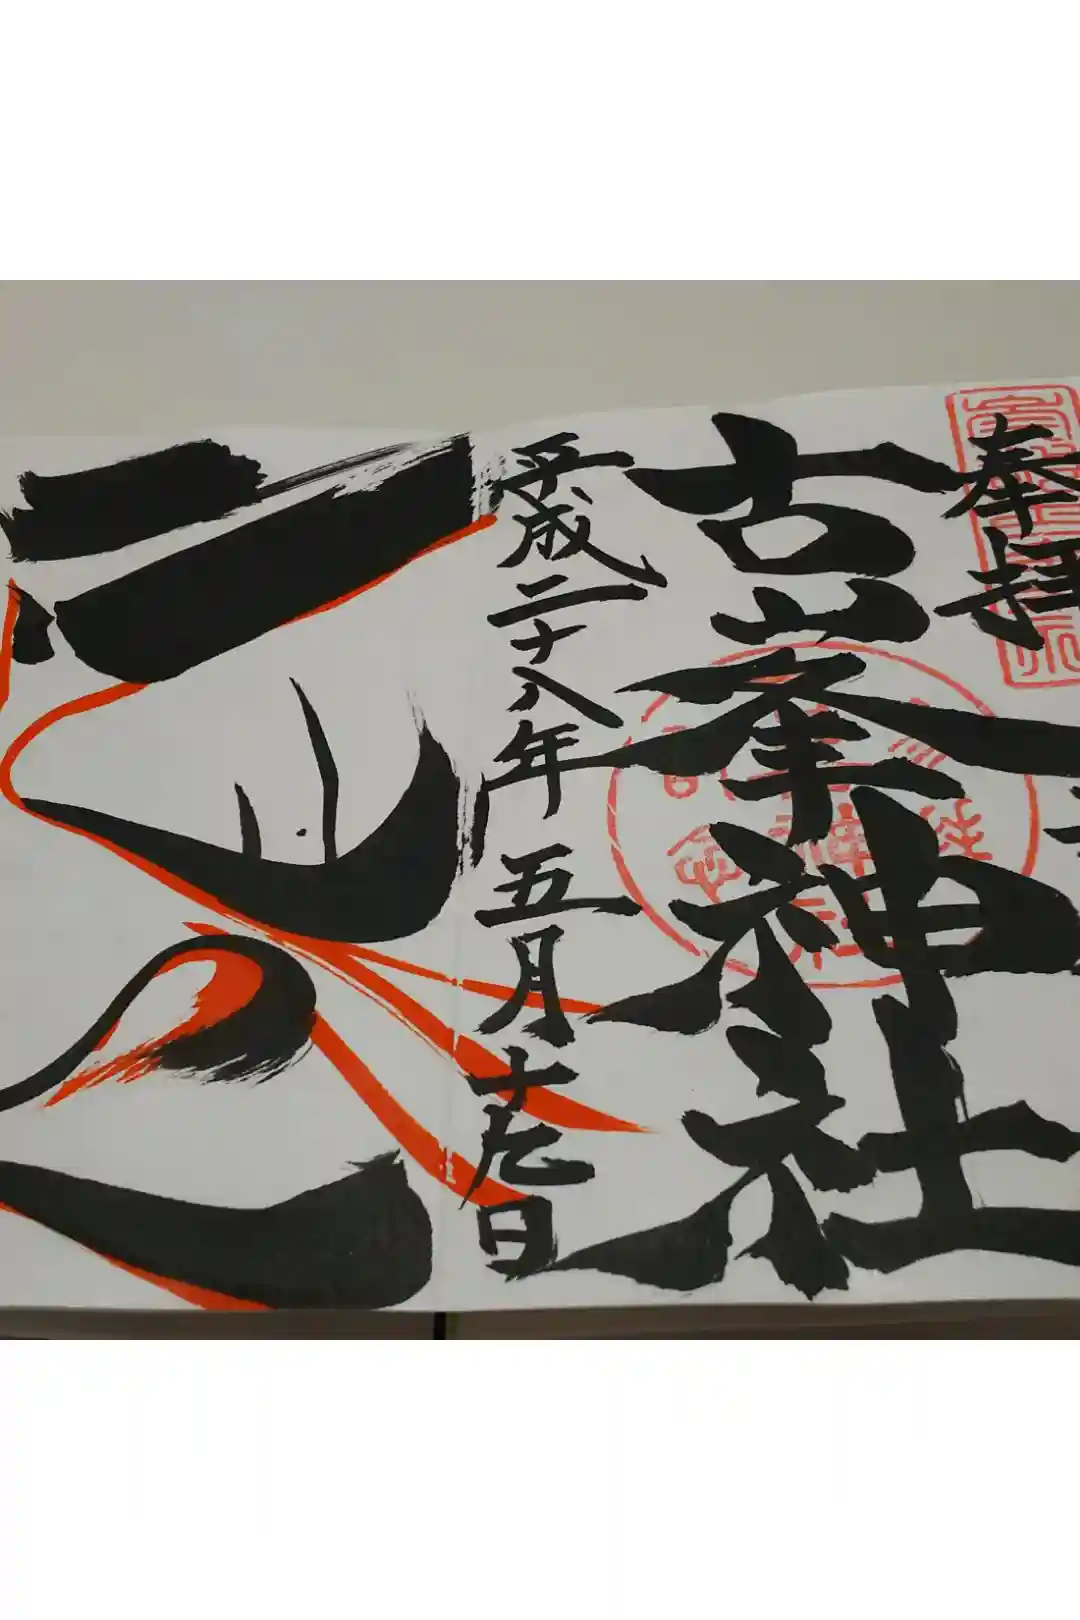 奉拝
古峯神社
平成二十八年五月十九日